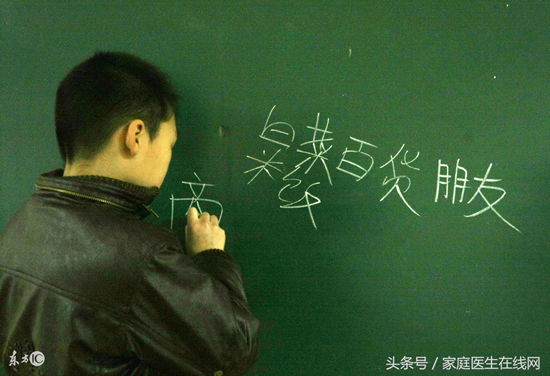 白菜百货 朋友
米
商
东方IC
头条号／家庭医生在线网